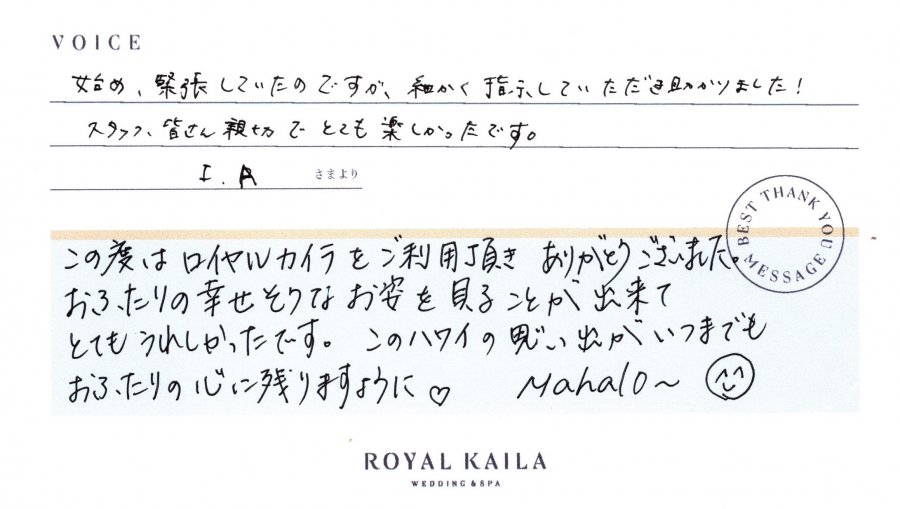 VOICE
始め、緊張していたのですが、細かく指示していただき助かりました!
スタッフ、皆さん親切でとても楽しかったです。
I.A さまより
BEST THANK YOU MESSAGE
この度はロイヤルカイラをご利用頂きありがとうございました。
おふたりの幸せそうなお姿を見ることが出来て
とてもうれしかったです。このハワイの思い出がいつまでも
おふたりの心に残りますように♡ Mahalo~
ROYAL KAILA
WEDDING & SPA